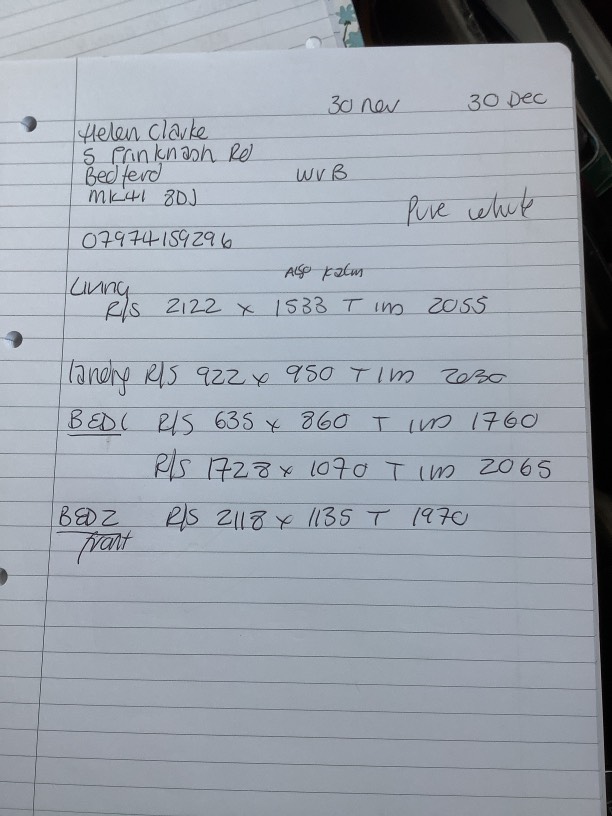 30 nov 30 Dec
Helen Clarke
5 Prinknash Rd
Bedford
WVB
MK41 8DJ
Pure white
07974159296
Living
R/S 2122 x 1533 T IM 2055
landing R/S 922 x 950 T IM 2030
BED1 R/S 635 x 860 T IM 1760
R/S 1728 x 1070 T IM 2065
BED2 R/S 2118 x 1135 T 1970
front